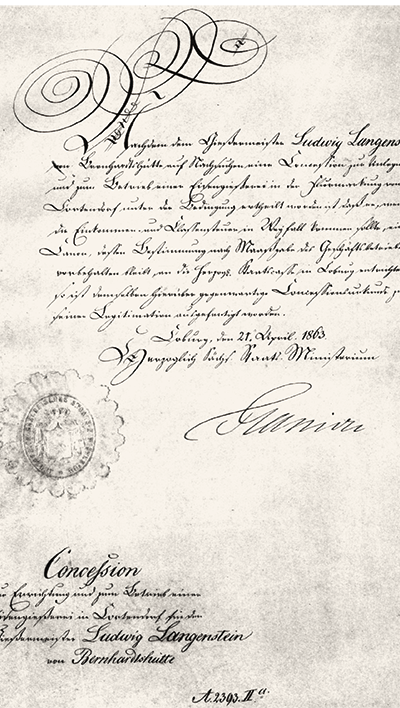 Nachdem dem Gießermeister Ludwig Langens
von Bernhardshütte auf Nachsuchen eine Concession zur Anlage
und zum Betrieb einer Eisengießerei in der Flurmarkung von
Cortendorf unter der Bedingung ertheilt worden ist, daß er, wenn
die Einkommen und Klassensteuer in Wegfall kommen sollte, ein
Canon, dessen Bestimmung nach Maasgabe des Geschäftsbetriebs
vorbehalten bleibt, an die Herzogl. Staatscasse in Coburg entrichte
so ist demselben hierüber gegenwärtige Concessionsurkunde zu
seiner Legitimation ausgefertigt worden.
Coburg, den 21. April 1863.
Herzoglich Sächs. Staats Ministerium
Concession
zur Errichtung und zum Betrieb einer
Eisengießerei in Cortendorf für den
Gießermeister Ludwig Langenstein
von Bernhardshütte
A. 2393. II a.